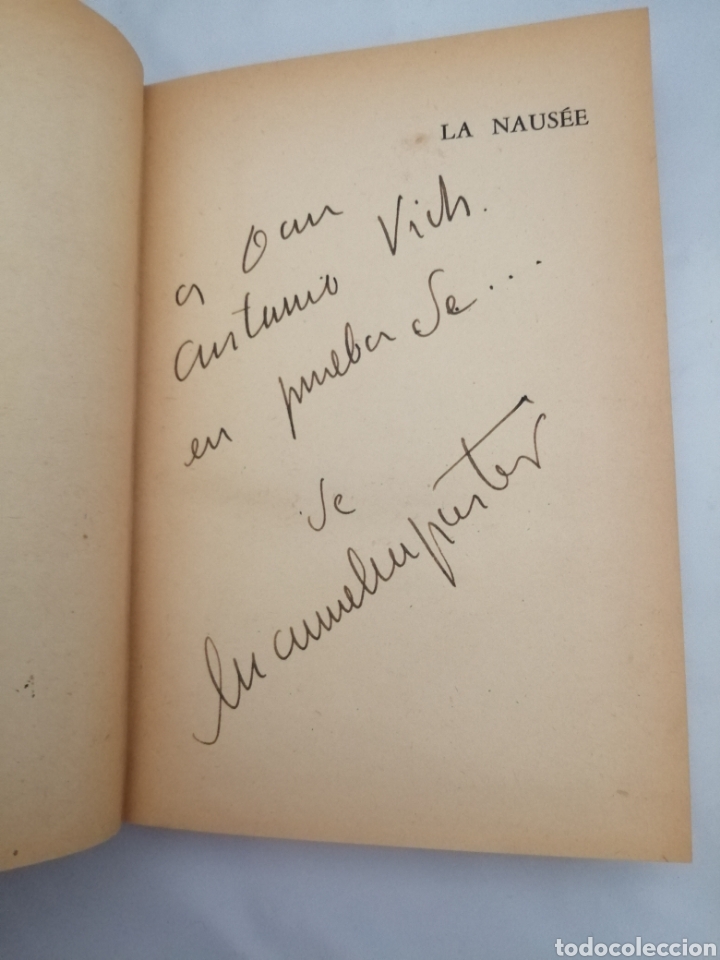 LA NAUSÉE
a Don
Antonio Vich.
en prueba de...
de
todocoleccion